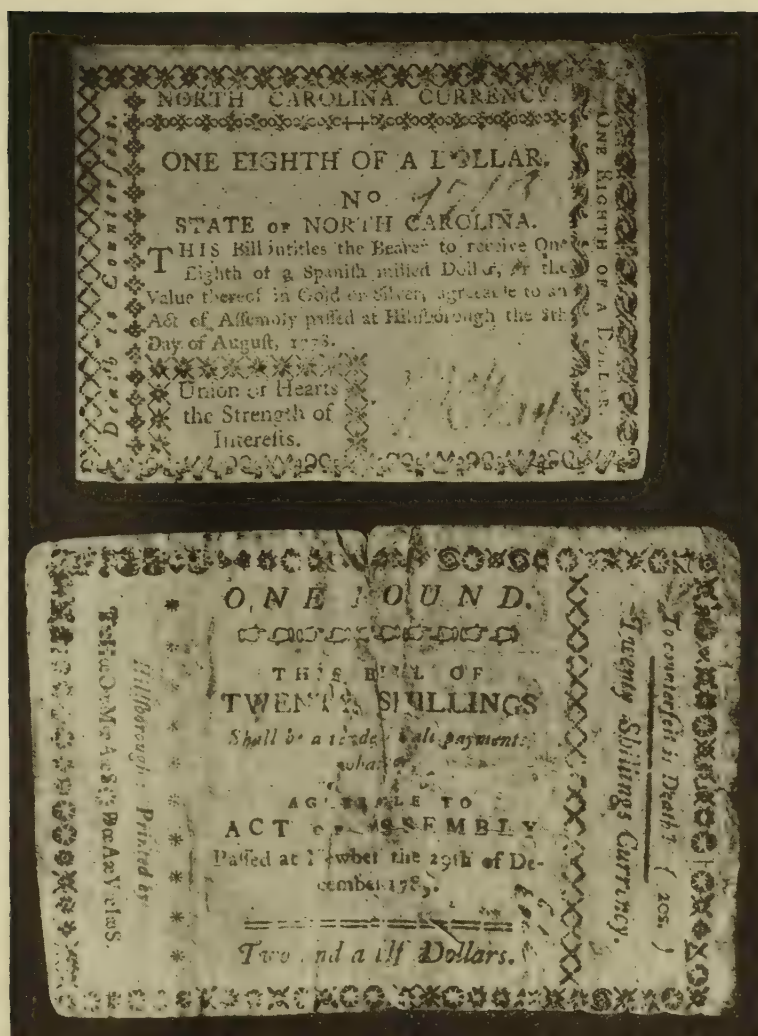 NORTH CAROLINA. CURRENCY.
ONE EIGHTH OF A DOLLAR.
No
STATE OF NORTH CAROLINA.
THIS Bill intitles the Bearer to receive One
Eighth of a Spanish milled Dollar, or the
Value thereof in Gold or Silver, agreeable to an
Act of Assembly passed at Hillsborough the 8th
Day of August, 1778.
Union of Hearts
the Strength of
Interests.
Death to Counterfeit
ONE EIGHTH OF A DOLLAR.
ONE POUND.
THIS BILL OF
TWENTY SHILLINGS
Shall be a tender in all payments
AGREEABLE TO
ACT OF ASSEMBLY
Passed at the 29th of De-
cember
Two and a Dollars.
Hillsborough: Printed by
To counterfeit is Death. (20s.)
Twenty Shillings Currency.